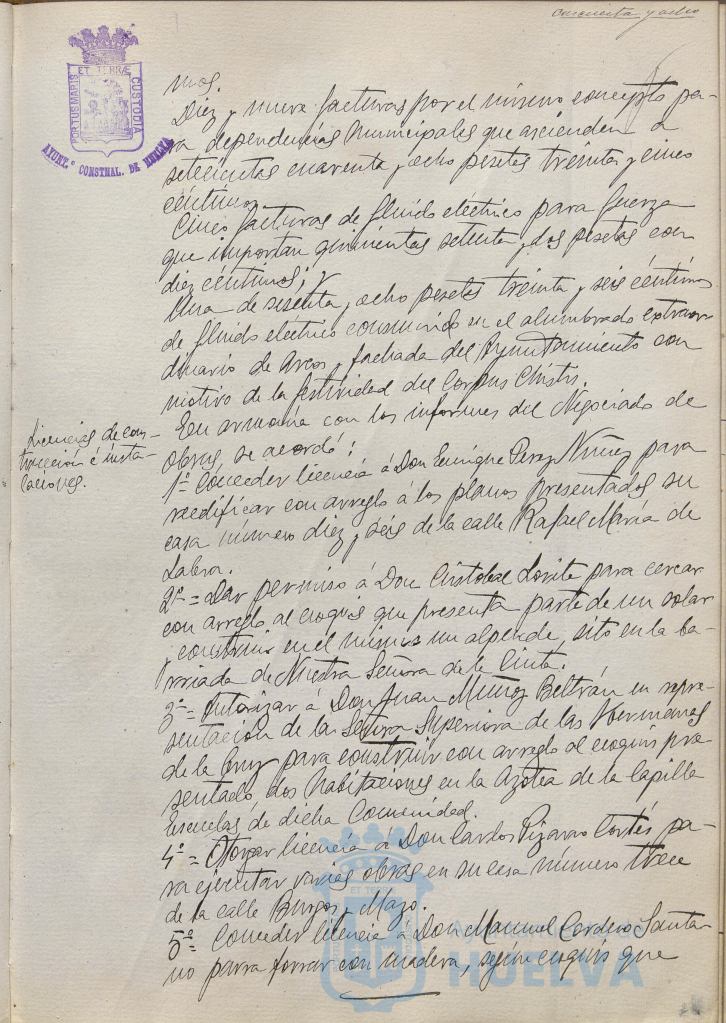 Cincuenta y ocho
PORTUS MARIS ET TERRÆ CUSTODIA
AYUNT.º CONSTNAL. DE HUELVA
mos.
Diez y nueve facturas por el mismo concepto pa-
ra dependencias Municipales que ascienden a
setecientas cuarenta y ocho pesetas treinta y cinco
céntimos.
Cinco facturas de fluido eléctrico para fuerza
que importan quinientas setenta y dos pesetas con
diez céntimos; y
Una de sesenta y ocho pesetas treinta y seis céntimos
de fluido eléctrico consumido en el alumbrado extraor-
dinario de Arcos y fachada del Ayuntamiento con
motivo de la festividad del Corpus Christi.
Licencias de cons-
trucción é insta-
laciones.
En armonía con los informes del Negociado de
obras, se acordó:
1º= Conceder licencia á Don Enrique Perez Núñez para
reedificar con arreglo á los planos presentados su
casa número diez y seis de la calle Rafael María de
Labra.
2º= Dar permiso á Don Cristobal Lorite para cercar
con arreglo al croquis que presenta parte de un solar
y construir en el mismo un alpende, sito en la ba-
rriada de Nuestra Señora de la Cinta.
3º= Autorizar á Don Juan Muñoz Beltrán en repre-
sentación de la Señora Superiora de las Hermanas
de la Cruz para construir con arreglo al croquis pre-
sentado dos habitaciones en la Azotea de la Capilla
Escuelas de dicha Comunidad.
4º= Otorgar licencia á Don Carlos Pizarro Cortés pa-
ra ejecutar varias obras en su casa número trece
de la calle Burgos y Mazo.
5º= Conceder licencia á Don Manuel Cordero Santa-
no para forrar con madera, según croquis que
ET TERRÆ
HUELVA